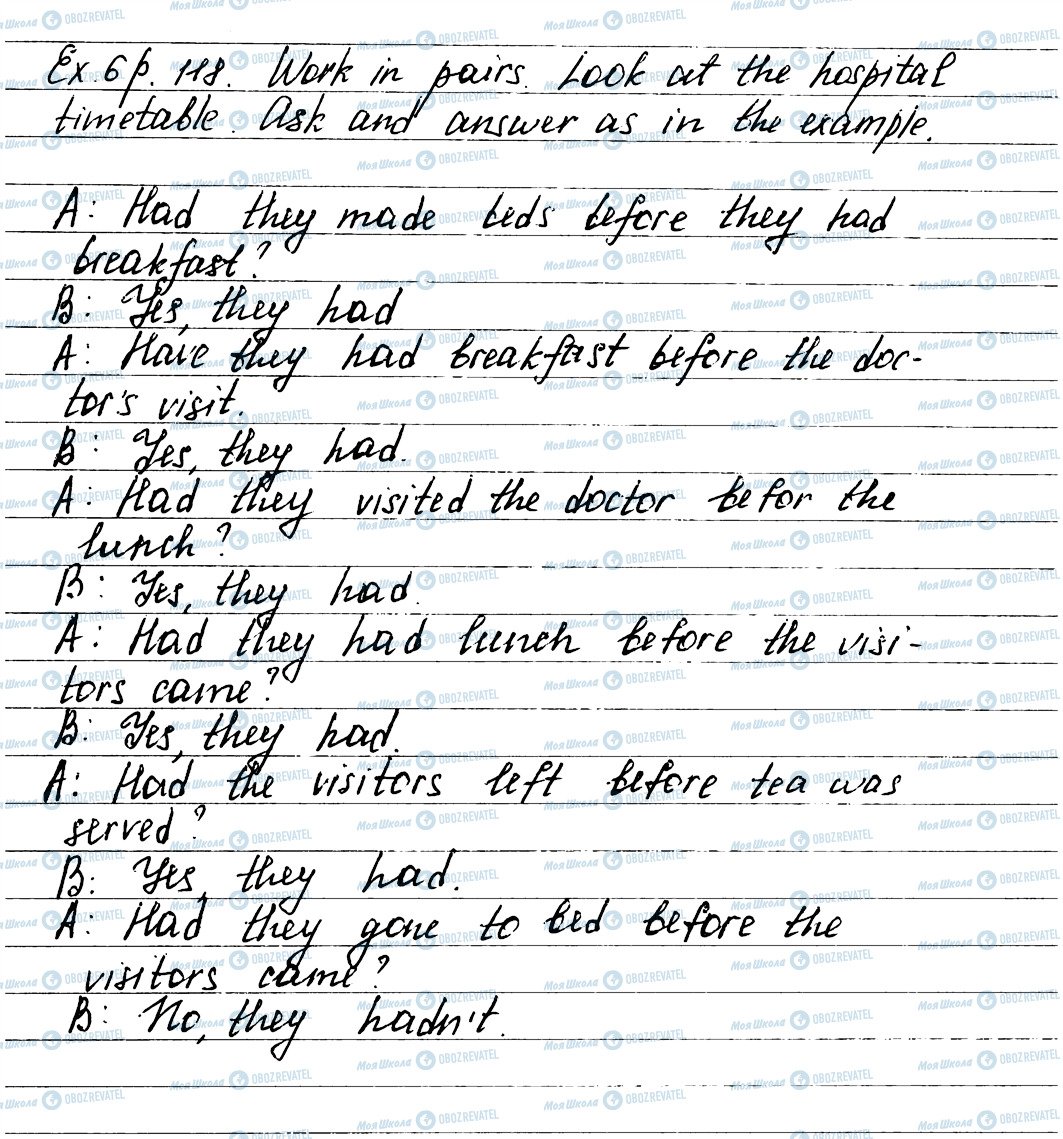 Ex 6 p. 118. Work in pairs. Look at the hospital
timetable. Ask and answer as in the example.
A: Had they made beds before they had
breakfast?
B: Yes, they had
A: Have they had breakfast before the doc-
tor's visit.
B: Yes, they had.
A: Had they visited the doctor befor the
lunch?
B: Yes, they had.
A: Had they had lunch before the visi-
tors came?
B: Yes, they had.
A: Had the visitors left before tea was
served?
B: Yes, they had.
A: Had they gone to bed before the
visitors came?
B: No, they hadn't.
МояШкола OBOZREVATEL